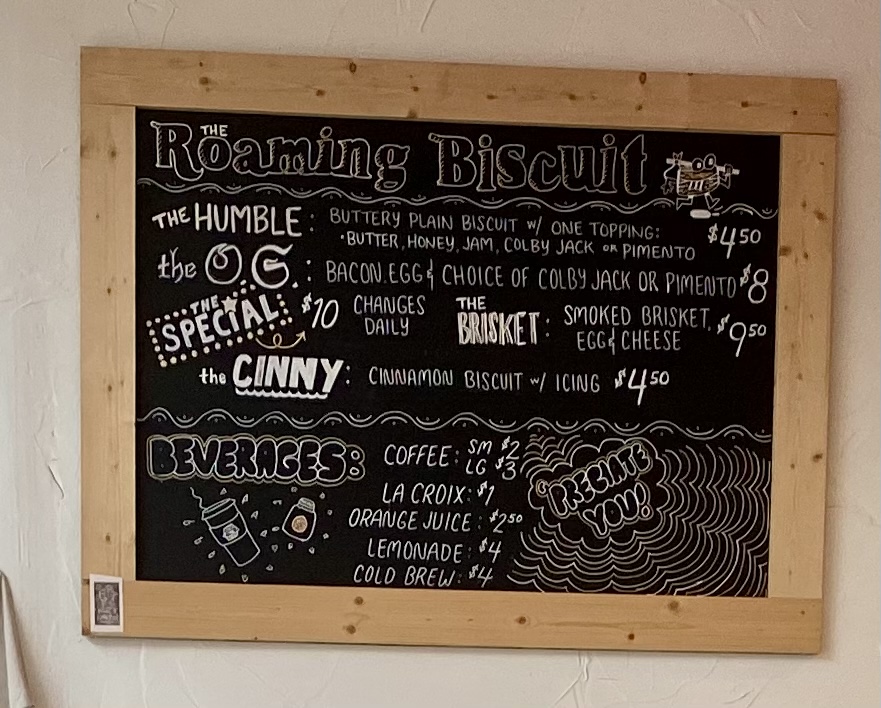 THE
Roaming Biscuit
THE HUMBLE: BUTTERY PLAIN BISCUIT w/ ONE TOPPING: $4.50
·BUTTER, HONEY, JAM, COLBY JACK OR PIMENTO
the O.G.: BACON, EGG & CHOICE OF COLBY JACK OR PIMENTO $8
THE SPECIAL $10 CHANGES DAILY
THE BRISKET: SMOKED BRISKET, EGG & CHEESE $9.50
the CINNY: CINNAMON BISCUIT w/ ICING $4.50
BEVERAGES:
COFFEE: SM $2
LG $3
LA CROIX: $1
ORANGE JUICE: $2.50
LEMONADE: $4
COLD BREW: $4
'PRECIATE
YOU!